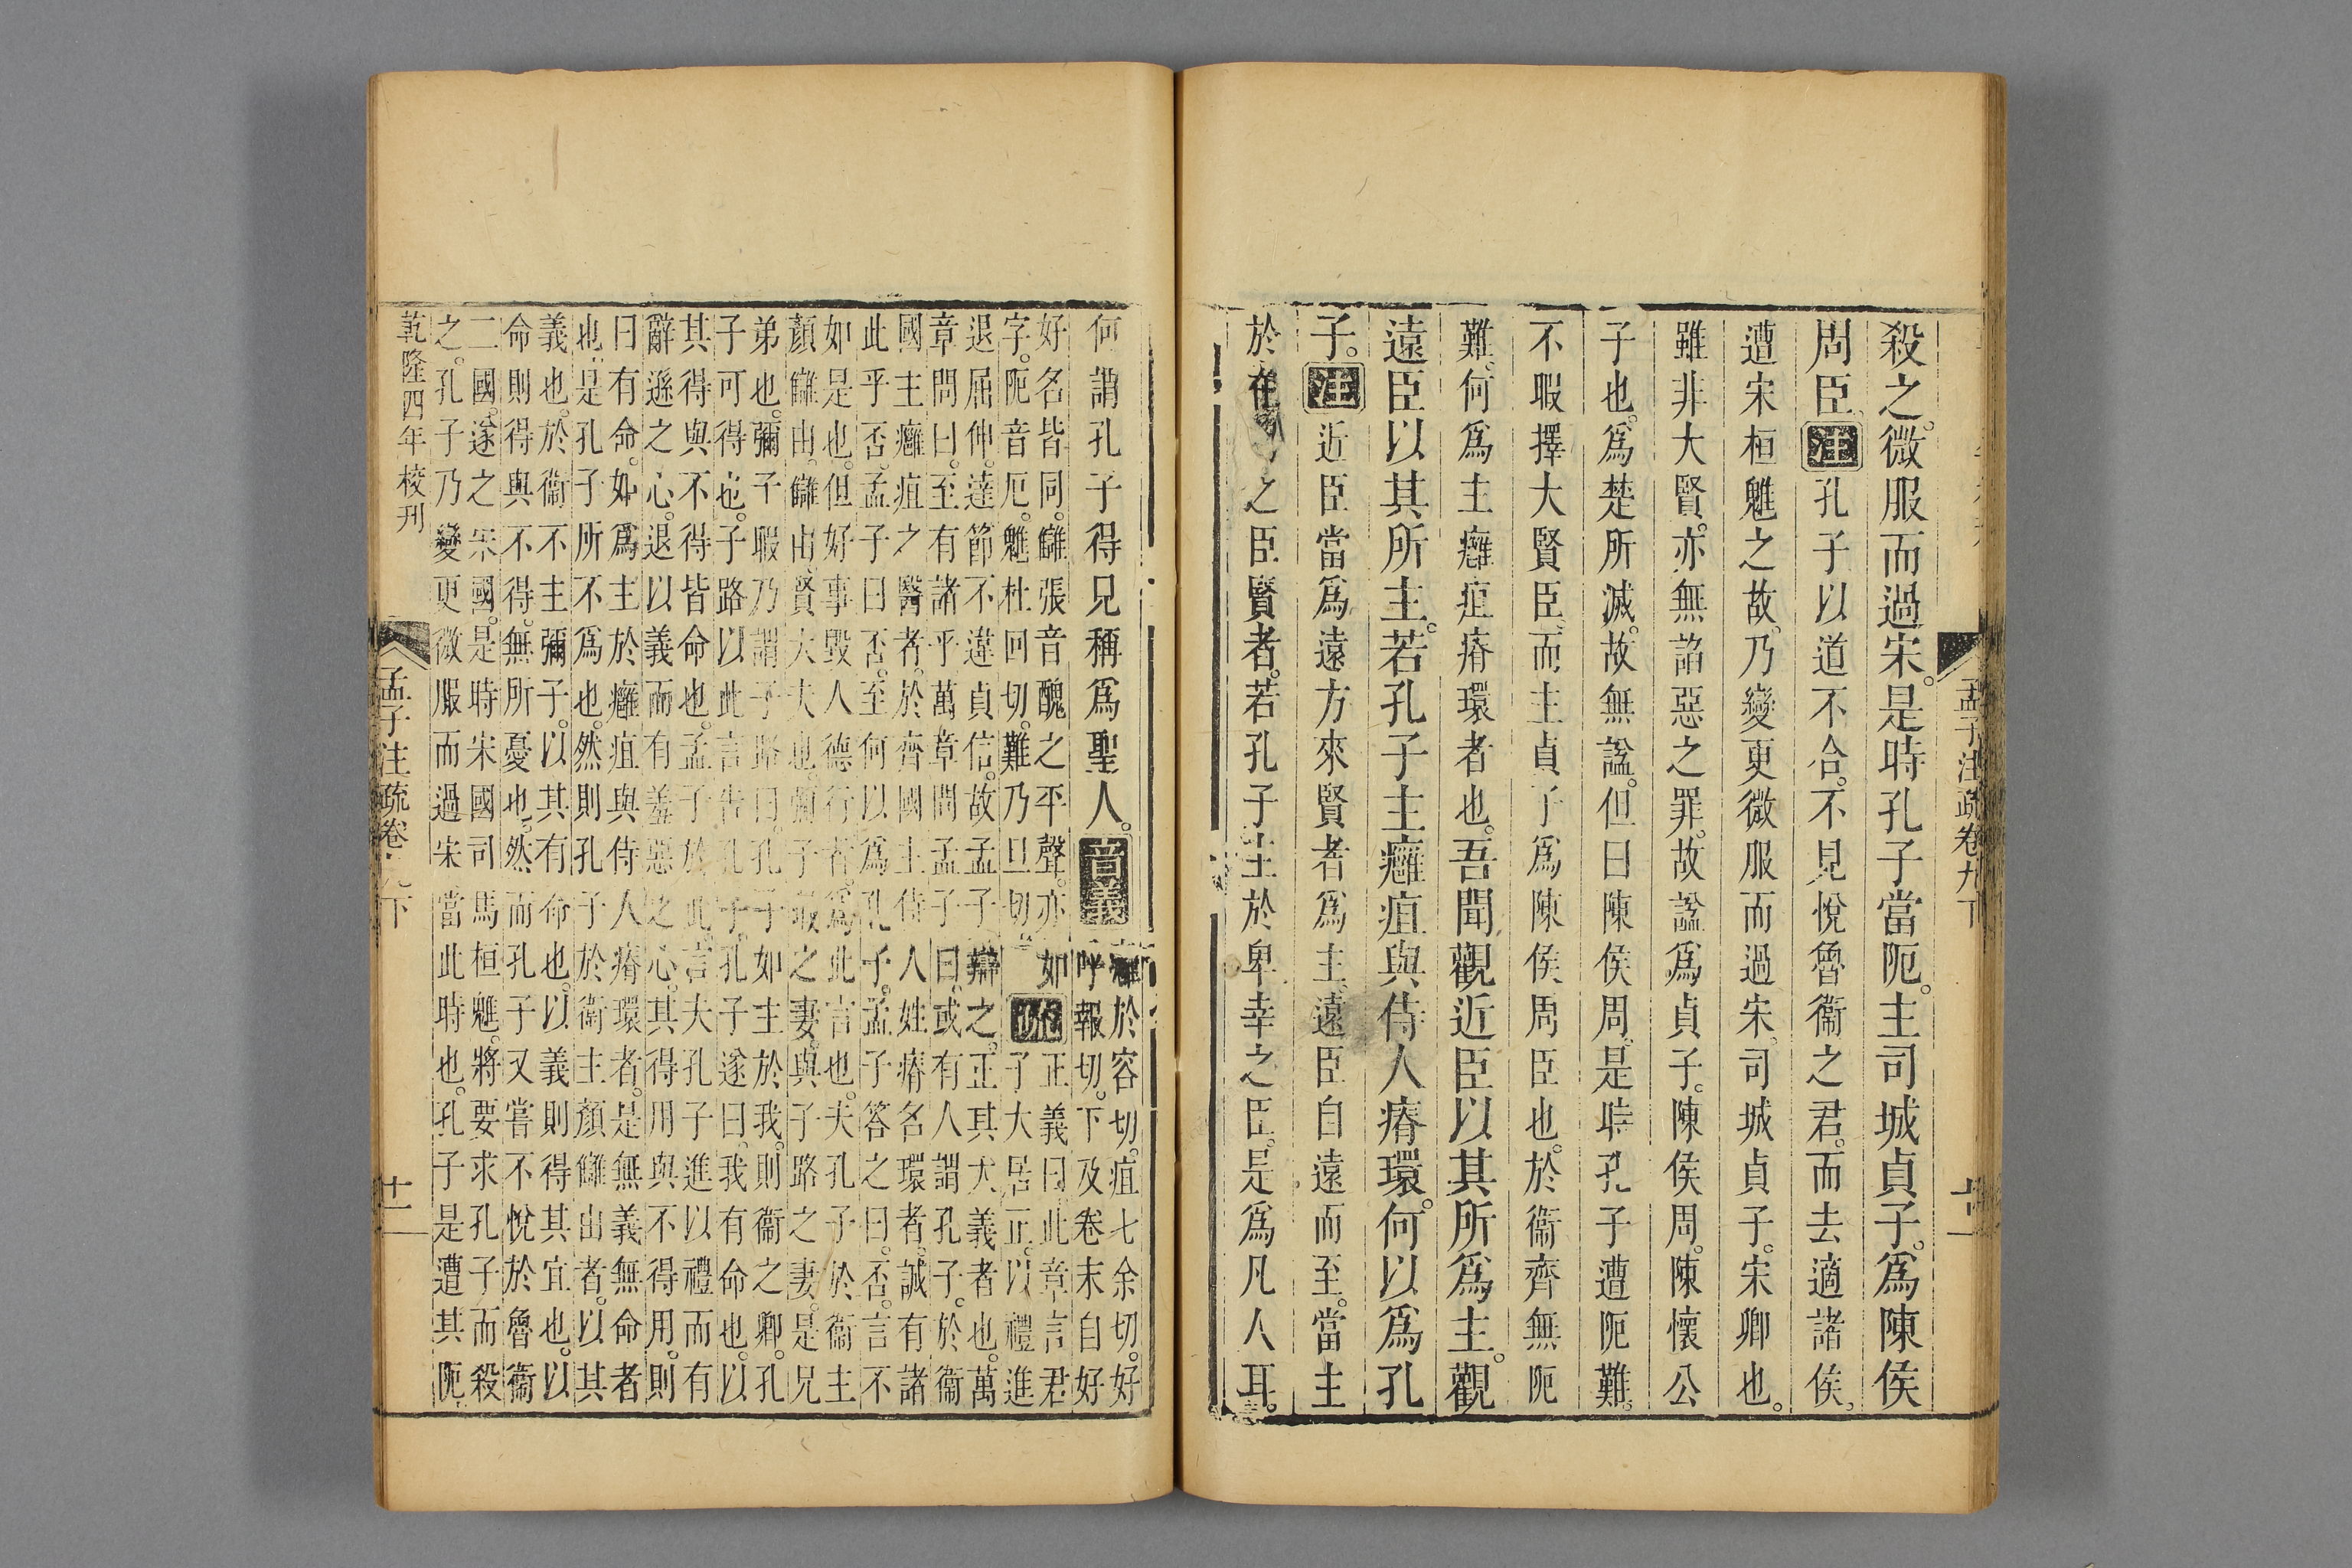 殺之。微服而過宋。是時孔子當阨。主司城貞子。爲陳侯
周臣。注孔子以道不合。不見悅魯衞之君。而去適諸侯。
遭宋桓魋之故。乃變更微服而過宋。司城貞子。宋卿也。
雖非大賢。亦無諂惡之罪。故諡爲貞子。陳侯周。陳懷公
子也。爲楚所滅。故無諡。但曰陳侯周。是時孔子遭阨難。
不暇擇大賢臣。而主貞子爲陳侯周臣也。於衞齊無阨
難。何爲主癰疽瘠環者也。吾聞觀近臣以其所爲主。觀
遠臣以其所主。若孔子主癰疽與侍人瘠環。何以爲孔
子。注近臣當爲遠方來賢者爲主。遠臣自遠而至。當主
於在之臣賢者。若孔子主於卑幸之臣。是爲凡人耳。
孟子注疏卷九下
何謂孔子得見稱爲聖人。音義癰於容切。疽七余切。好
呼報切。下及卷末自好
好名皆同。讎張音醜之平聲。亦如
字。阨音厄。魋杜回切。難乃旦切。
疏正義曰此章言君
子大居正。以禮進
退屈伸。達節不違貞信。故孟子辯之。正其大義者也。萬
章問曰。至有諸乎萬章問孟子曰。或有人謂孔子。於衞
國主癰疽之醫者。於齊國主侍人姓瘠名環者。誠有諸
此乎否。孟子曰否。至何以爲孔子。孟子答之曰。否。言不
如是也。但好事毀人德行者。爲此言也。夫孔子於衞主
顏讎由。讎由賢大夫也。彌子瑕之妻。與子路之妻。是兄
弟也。彌子瑕乃謂子路曰。孔子如主於我。則衞之卿。孔
子可得也。子路以此言告孔子。孔子遂曰。我有命也。以
其得與不得皆命也。孟子於此言大孔子進以禮而有
辭遜之心。退以義而有羞惡之心。其得用與不得用。則
曰有命。如爲主於癰疽與侍人瘠環者。是無義無命者
也。是孔子所不爲也。然則孔子於衞主顏讎由者。以其
義也。於衞不主彌子。以其有命也。以義則得其宜也。以
命則得與不得。無所憂也。然而孔子又嘗不悅於魯衞
二國。遂之宋國。是時宋國司馬桓魋。將要求孔子而殺
之。孔子乃變更微服而過宋當此時也。孔子是遭其阨
乾隆四年校刊
孟子注疏卷九下
十二